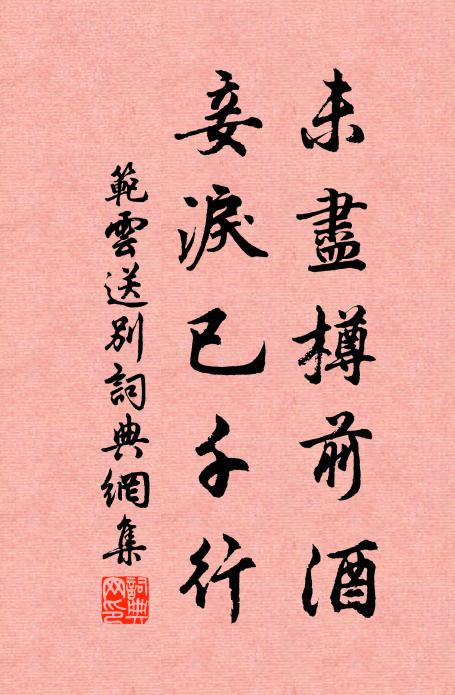 未盡樽前酒
妾淚已千行
範雲送別詞典網集
詞典網印